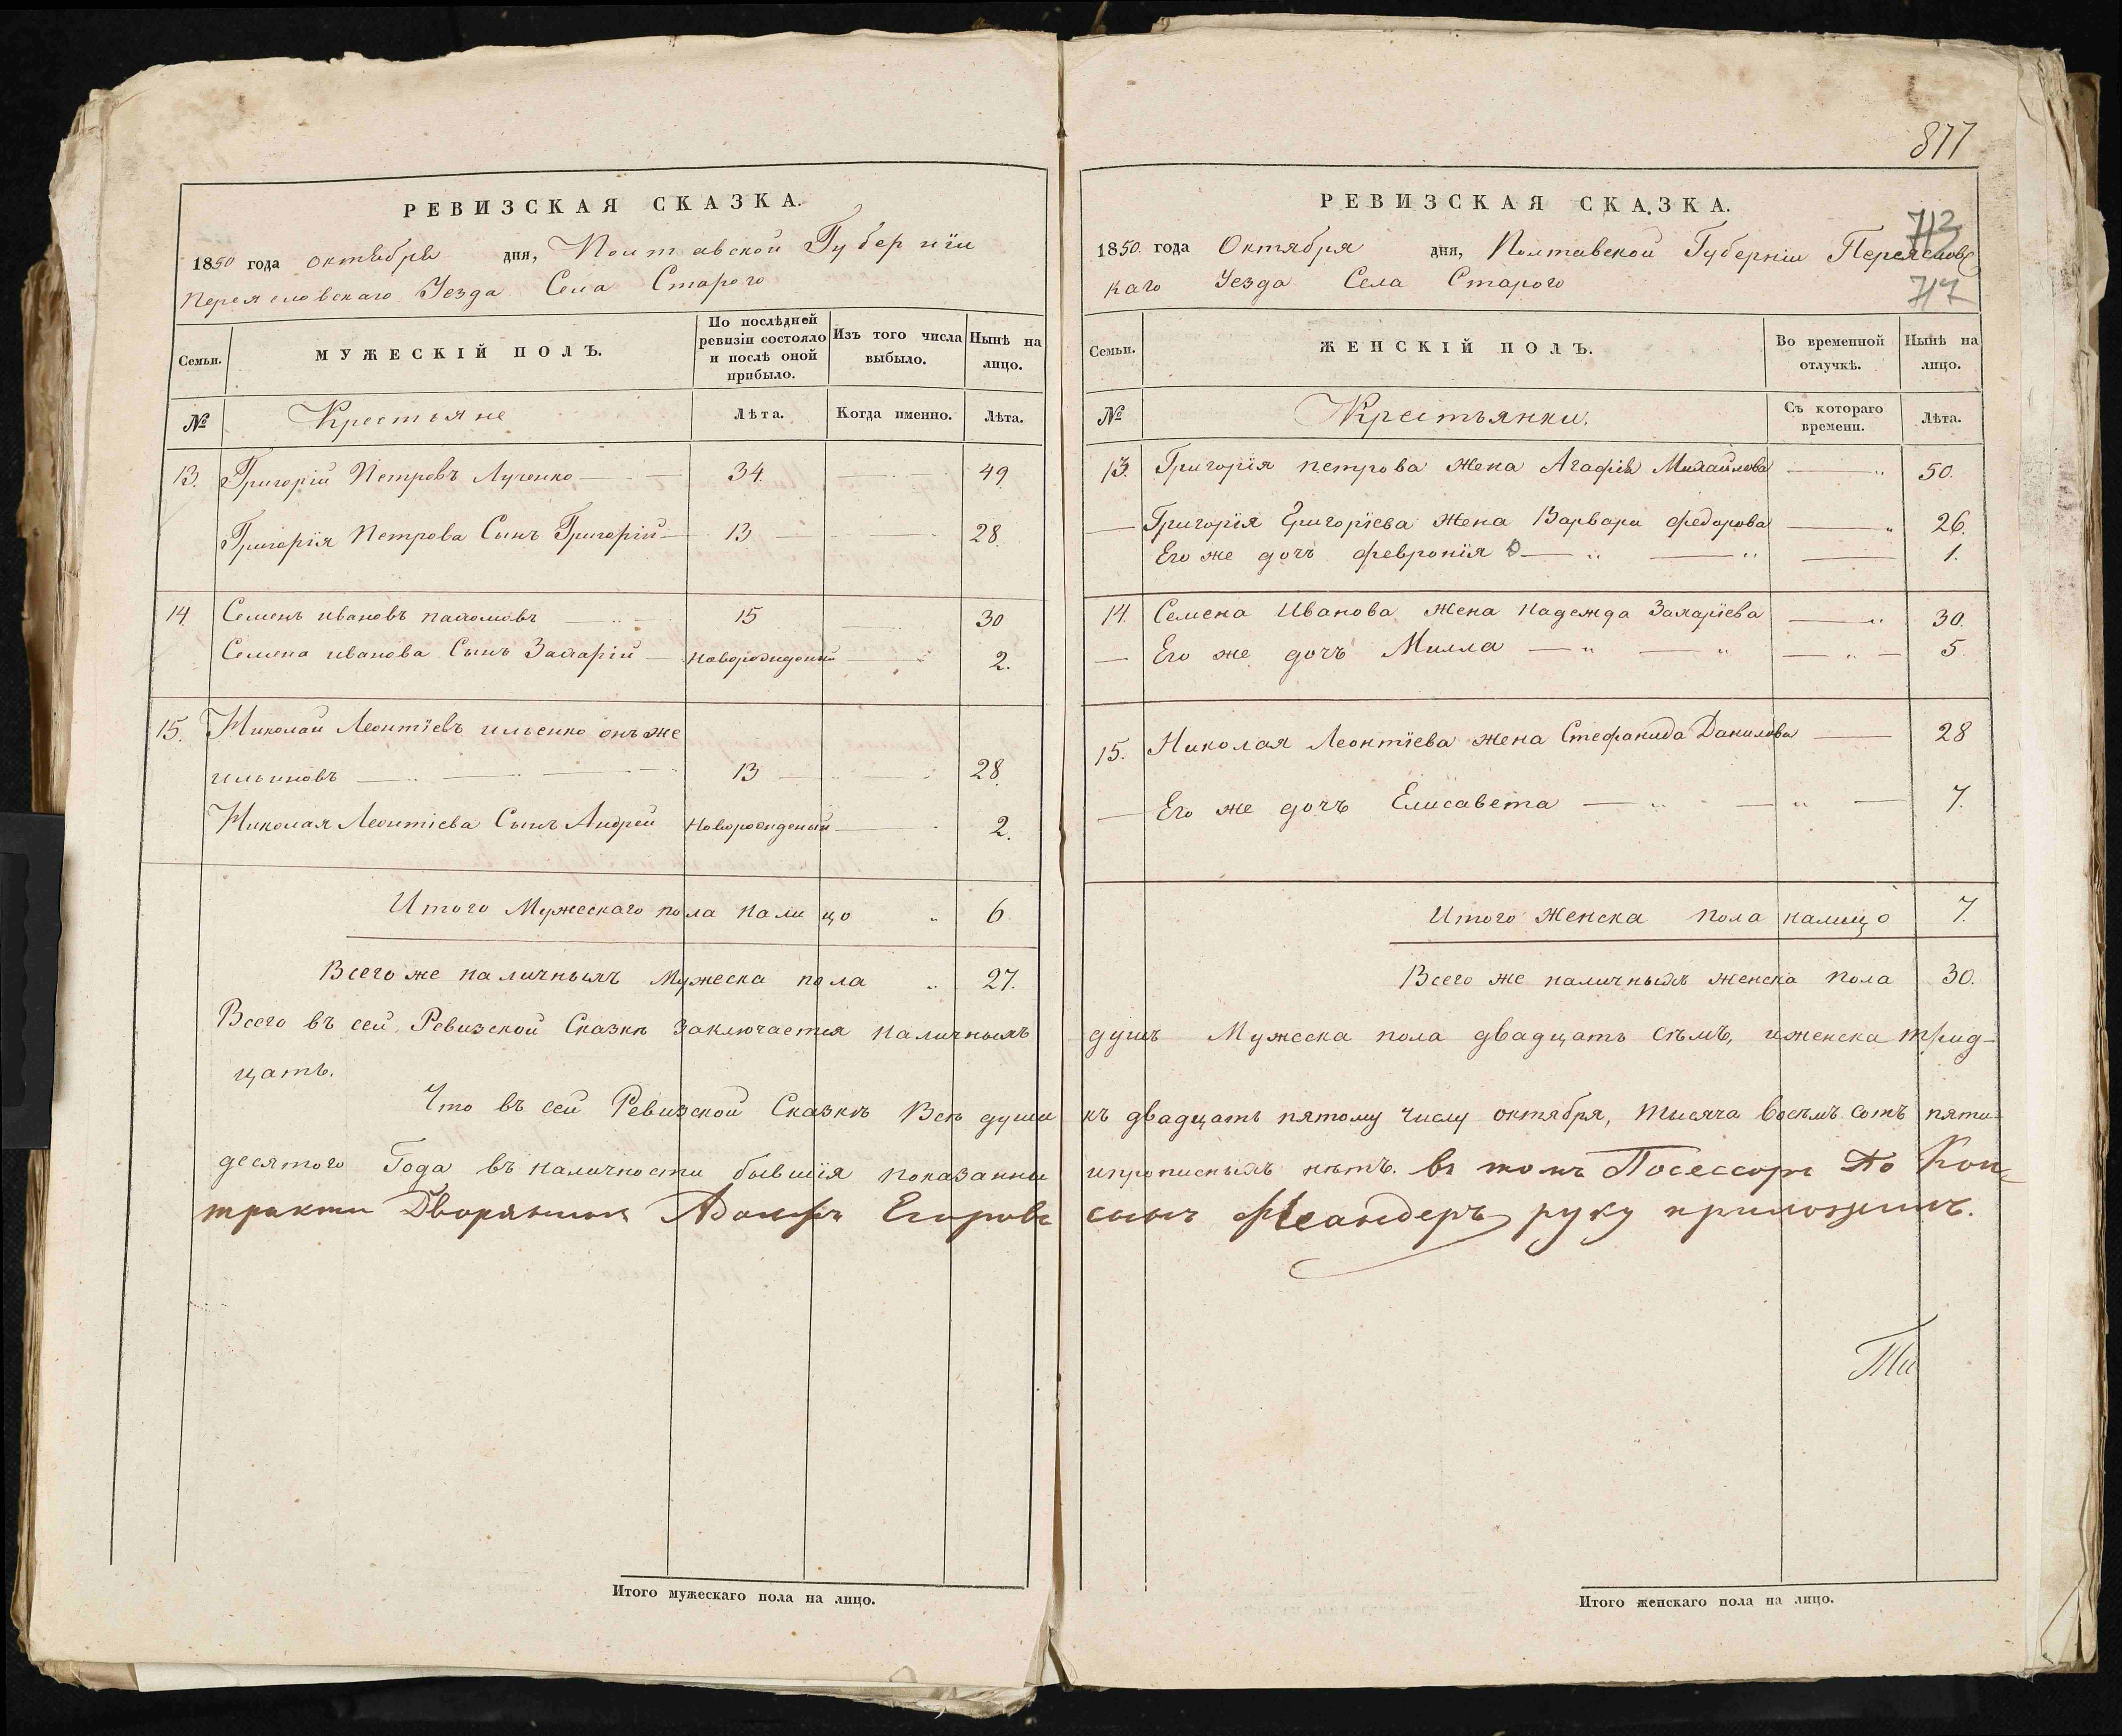 877
РЕВИЗСКАЯ СКАЗКА.
1850 года октября дня, Полтавской Губерніи
Переясловскаго Уезда Села Старого
Семьи.
МУЖЕСКІЙ ПОЛЪ.
По послѣдней ревизіи состояло и послѣ оной прибыло.
Изъ того числа выбыло.
Нынѣ на лицо.
№
Крестьяне
Лѣта.
Когда именно.
Лѣта.
13. Григорій Петровъ Лученко 34. 49
Григорія Петрова Сынъ Григорій 13 28.
14 Семенъ ивановъ 15 30
Семена иванова Сынъ Захарій Новорожденый 2.
15. Николай Леонтіевъ ильенко онъ же
ильиновъ 13 28.
Николая Леонтіева Сынъ Андрей Новорожденый 2.
Итого Мужескаго пола на лицо 6
Всего же наличныхъ Мужеска пола 27.
РЕВИЗСКАЯ СКАЗКА.
713
1850. года Октября дня, Полтавской Губерніи Переяслов
каго Уезда Села Старого
717
Семьи.
ЖЕНСКІЙ ПОЛЪ.
Во временной отлучкѣ.
Нынѣ на лицо.
№
Крестьянки.
Съ котораго времени.
Лѣта.
13. Григорія петрова Жена Агафія Михайлова 50.
Григорія Григоріева Жена Варвара федорова 26.
Его же дочь февронія 1.
14. Семена Иванова Жена Надежда Захаріева 30.
Его же дочъ Милла 5.
15. Николая Леонтіева жена Стефанида Данилова 28
Его же дочъ Елисавета 7.
Итого Женска пола налицо 7.
Всего же наличныхъ женска пола 30.
Всего въ сей Ревизской Сказкѣ Заключается Наличныхъ душъ Мужеска пола двадцать сѣмъ, иженска трид-
цать.
Что въ сей Ревизской Сказкѣ Всѣ души къ двадцать пятому числу октября, тисяча восемъ сотъ пяти-
десятого Года въ наличности бывшія показанны ипрописныхъ нѣтъ. въ томъ Посессоръ По Кон-
тракту Дворянинъ Адольфъ Егоровъ сынъ руку приложилъ.
Итого мужескаго пола на лицо.
Итого женскаго пола на лицо.